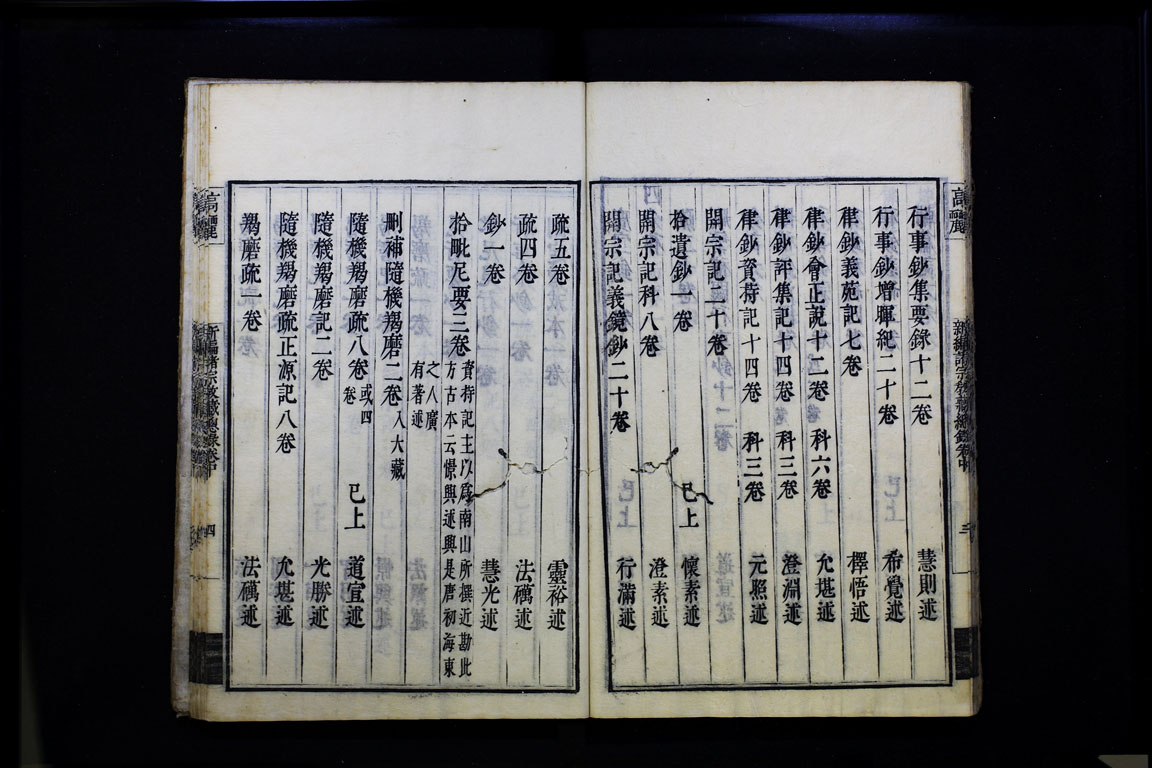 高麗
新編諸宗教藏總錄卷中
三
行事鈔集要錄十二卷 慧則述
行事鈔增暉紀二十卷 希覺述
律鈔義苑記七卷 擇悟述
律鈔會正說十二卷 科六卷 允堪述
律鈔評集記十四卷 科三卷 澄淵述
律鈔資持記十四卷 科三卷 元照述
開宗記二十卷
拾遺鈔一卷 已上 懷素述
開宗記科八卷 澄素述
開宗記義鏡鈔二十卷 行滿述
疏五卷 靈裕述
疏四卷 法礪述
鈔一卷 慧光述
拾毗尼要三卷 資持記主以爲南山所撰近勘此
方古本云憬興述興是唐初海東
之人廣
有著述
刪補隨機羯磨二卷 入大藏
隨機羯磨疏八卷 或四
卷 已上 道宣述
隨機羯磨記二卷 光勝述
隨機羯磨疏正源記八卷 允堪述
羯磨疏一卷 法礪述
高麗
新編諸宗教藏總錄卷中
四